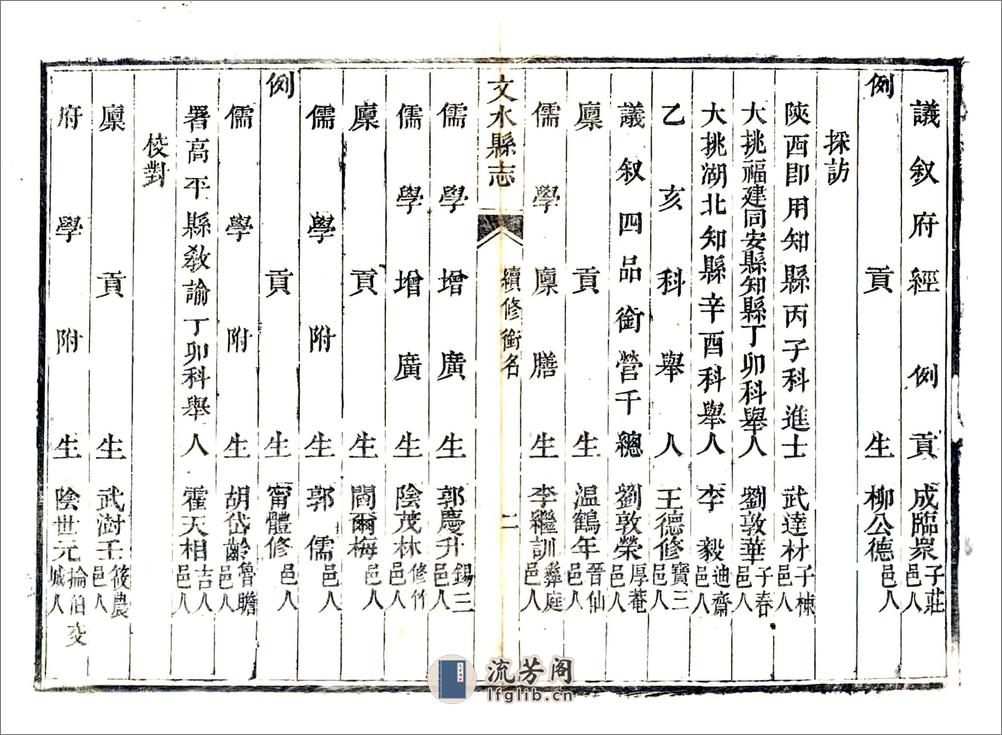 議叙府經例貢成臨衆子莊邑人
例貢生柳公德邑人
採訪
陝西卽用知縣丙子科進士武達材子棟邑人
大挑福建同安縣知縣丁卯科舉人劉敦華子春邑人
大挑湖北知縣辛酉科舉人李毅迪齋邑人
乙亥科舉人王德修寶三邑人
議叙四品銜營千總劉敦榮厚菴邑人
廩貢生温鶴年晉仙邑人
儒學廪膳生李繼訓彝庭邑人
文水縣志
續修銜名
二
儒學增廣生郭慶升錫三邑人
儒學增廣生陰茂林修竹邑人
廪貢生閻爾梅邑人
儒學附生郭儒邑人
例貢生甯體修邑人
儒學附生胡岱齡魯瞻邑人
署高平縣敎諭丁卯科舉人霍天相吉人邑人
校對
廩貢生武澍壬筱農邑人
府學附生陰世元掄伯交城人
流芳阁
lfglib.cn